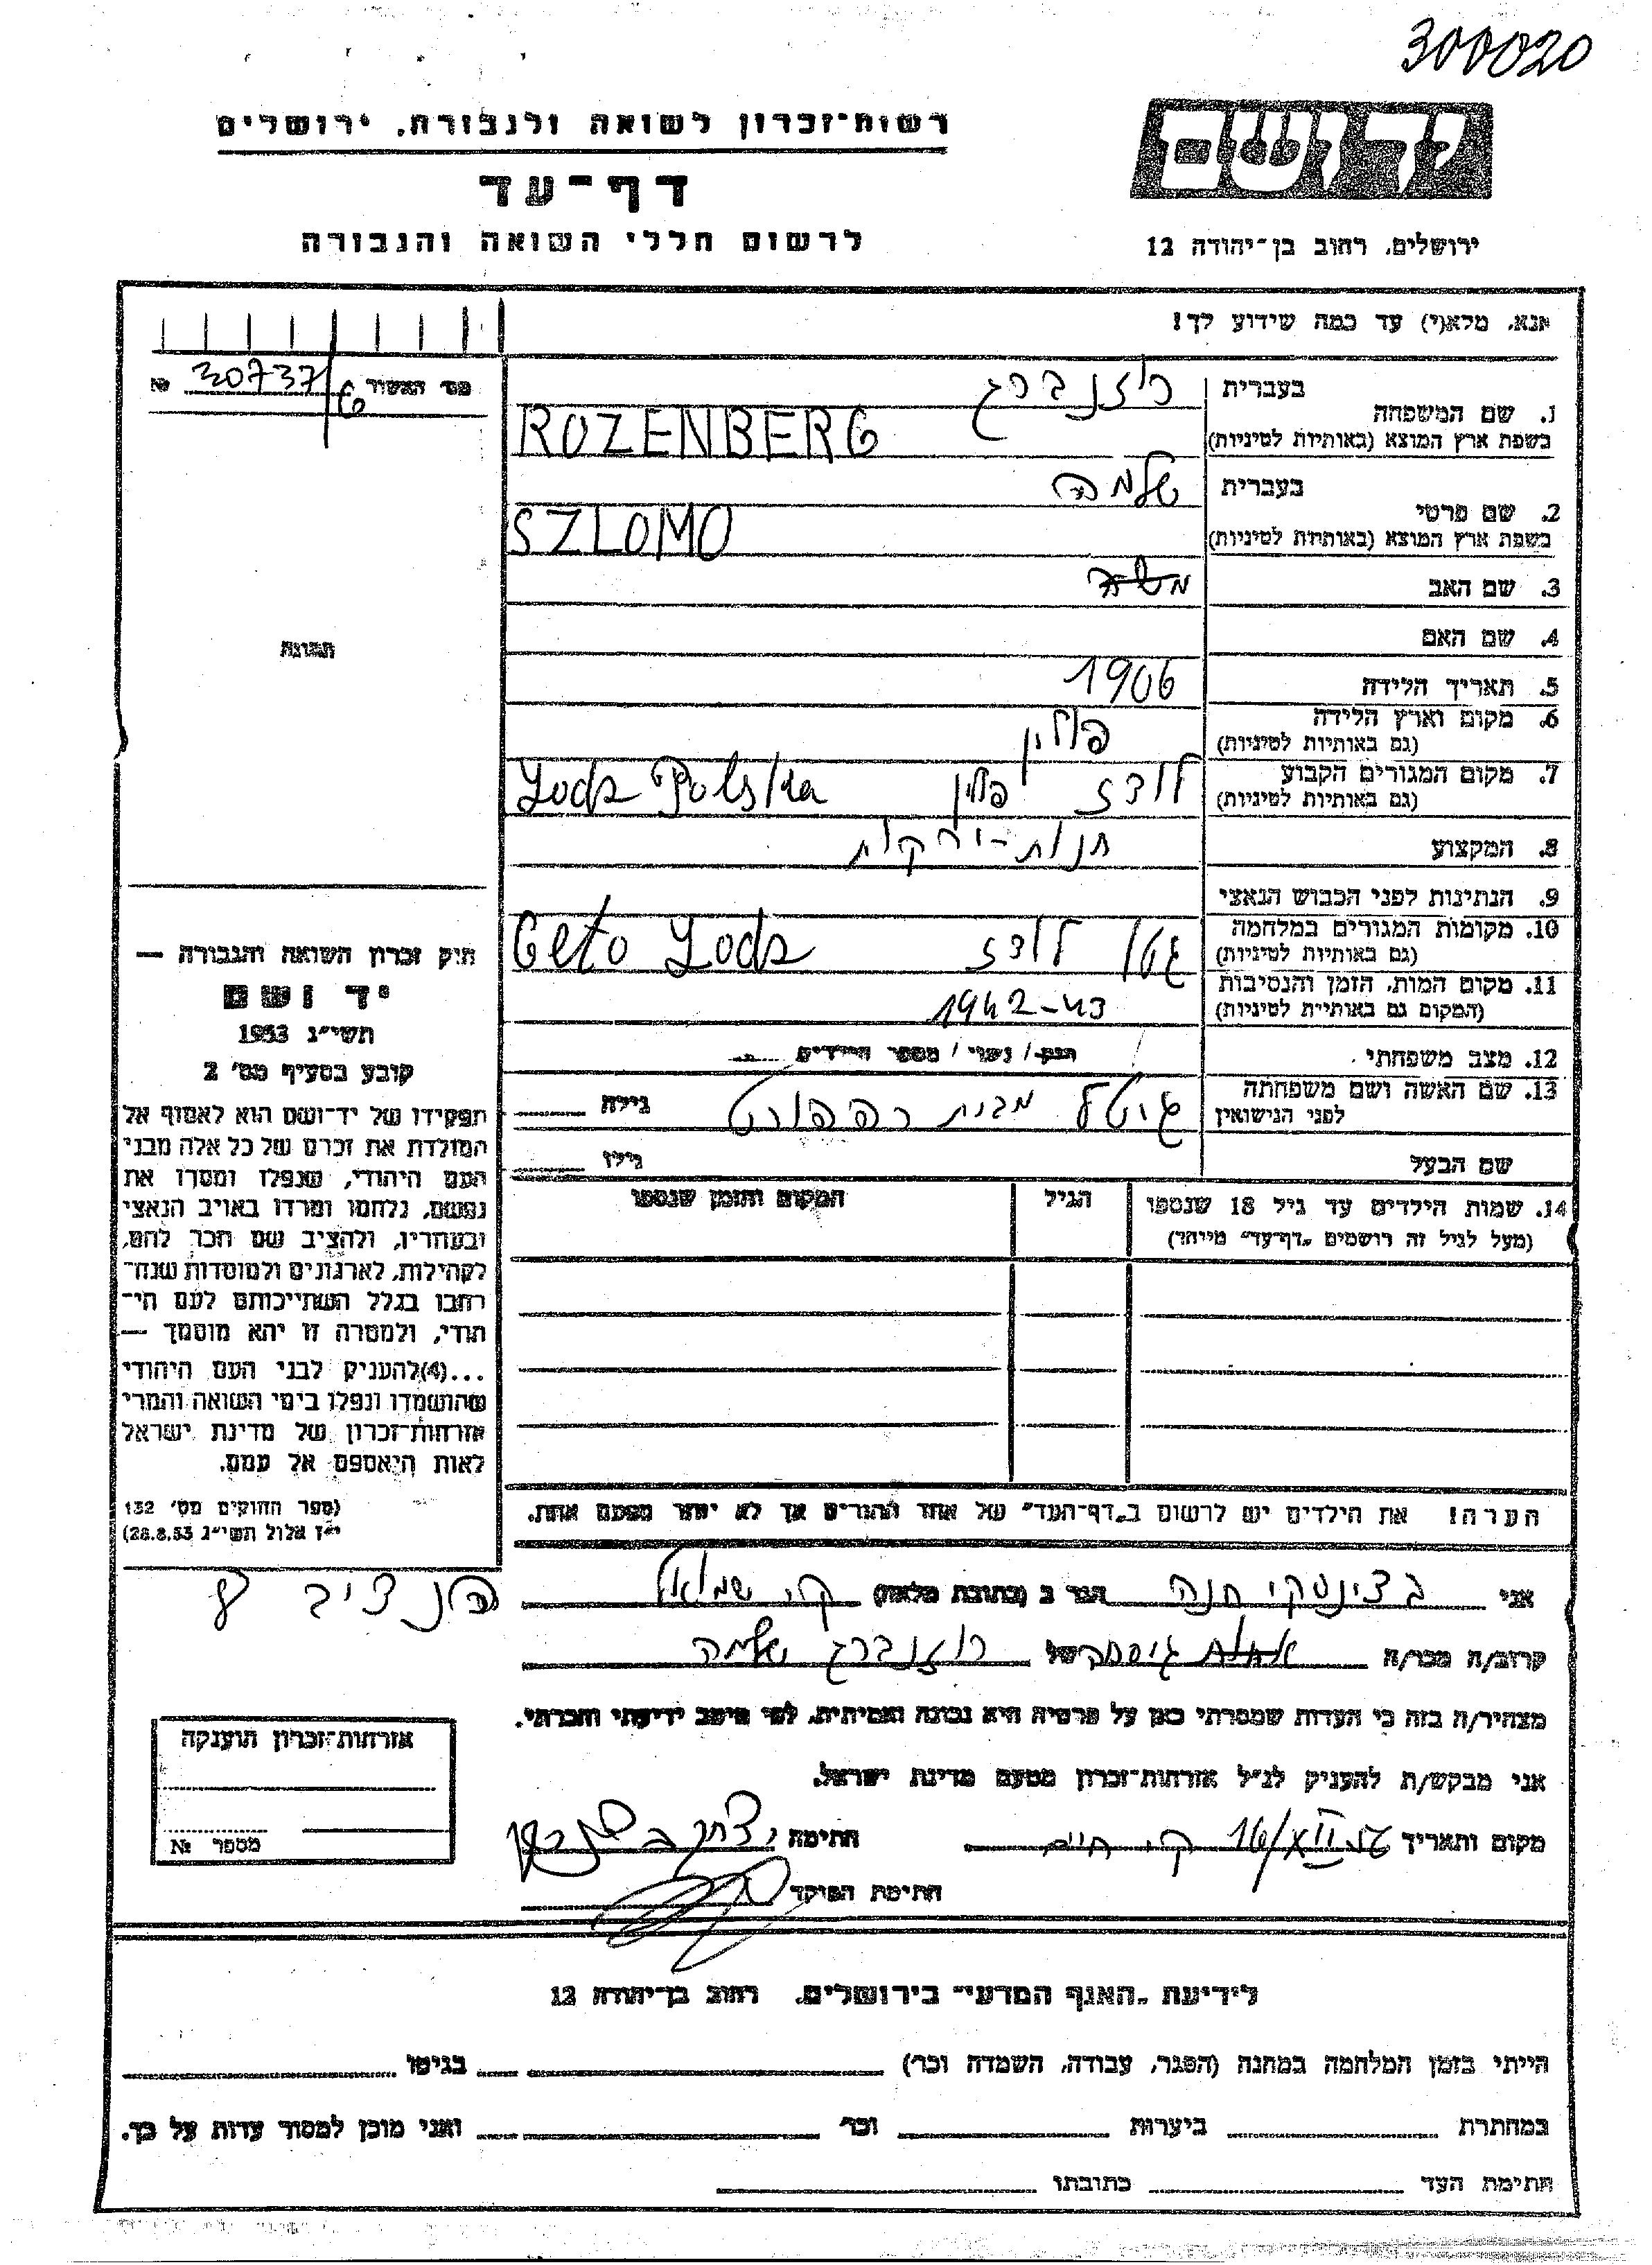 300020
רשות־זכרון לשואה ולגבורה, ירושלים
דף־עד
לרשום חללי השואה והגבורה
יד ושם
ירושלים, רחוב בן־יהודה 12
אנא, מלא(י) עד כמה שידוע לך!
מס׳ האשור 30737/6 №
1. שם המשפחה
בעברית רוזנברג
בשפת ארץ המוצא (באותיות לטיניות) ROZENBERG
2. שם פרטי
בעברית שלמה
בשפת ארץ המוצא (באותיות לטיניות) SZLOMO
3. שם האב משה
4. שם האם
5. תאריך הלידה 1906
6. מקום וארץ הלידה פולין
(גם באותיות לטיניות)
7. מקום המגורים הקבוע לודז פולין Lodz Polska
(גם באותיות לטיניות)
8. המקצוע חנות-ירקות
9. הנתינות לפני הכבוש הנאצי
10. מקומות המגורים במלחמה גטו לודז Geto Lodz
(גם באותיות לטיניות)
11. מקום המות, הזמן והנסיבות 1942-43
(המקום גם באותיות לטיניות)
12. מצב משפחתי רווק / נשוי / מספר הילדים
13. שם האשה ושם משפחתה גיטל מבית רפפורט גילה
לפני הנישואין
שם הבעל גילו
14. שמות הילדים עד גיל 18 שנספו הגיל המקום והזמן שנספו
(מעל לגיל זה רושמים „דף־עד" מיוחד)
הערה! את הילדים יש לרשום ב„דף־העד" של אחד ההורים אך לא יותר מפעם אחת.
תמונה
חוק זכרון השואה והגבורה —
יד ושם
תשי״ג 1953
קובע בסעיף מס׳ 2
תפקידו של יד־ושם הוא לאסוף אל
המולדת את זכרם של כל אלה מבני
העם היהודי, שנפלו ומסרו את
נפשם, נלחמו ומרדו באויב הנאצי
ובעוזריו, ולהציב שם וזכר להם,
לקהילות, לארגונים ולמוסדות שנח־
רבו בגלל השתייכותם לעם הי־
הודי, ולמטרה זו יהא מוסמך —
...(4) להעניק לבני העם היהודי
שהושמדו ונפלו בימי השואה והמרי
אזרחות־זכרון של מדינת ישראל
לאות היאספם אל עמם.
(ספר החוקים מס׳ 132
י״ז אלול תשי״ג 28.8.53)
אני בצינסקי חנה הגר ב (כתובת מלאה) קרי שמואל הנציב 8
קרוב/ה מכר/ה גיסה של רוזנברג שלמה
מצהיר/ה בזה כי העדות שמסרתי כאן על פרטיה היא נכונה ואמיתית, לפי מיטב ידיעתי והכרתי.
אני מבקש/ת להעניק לנ״ל אזרחות־זכרון מטעם מדינת ישראל.
מקום ותאריך 16/XII קרי חיים חתימה
חתימת הפוקד
אזרחות־זכרון הוענקה
מספר №
לידיעת „האגף המדעי" בירושלים, רחוב בן־יהודה 12
הייתי בזמן המלחמה במחנה (הסגר, עבודה, השמדה וכו׳) בגיטו
במחתרת ביערות וכו׳ ואני מוכן למסור עדות על כך.
חתימת העד כתובתו